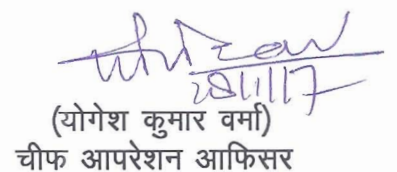 28/11/17
(योगेश कुमार वर्मा)
चीफ आपरेशन आफिसर